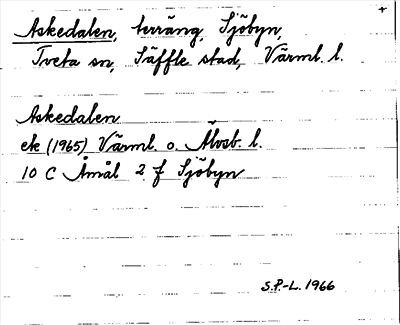 Askedalen, terräng, Sjöbyn,
Tveta sn, Säffle stad, Värml. l.
Askedalen
ek (1965) Värml. o. Älvsb. l.
10 C Åmål 2 f Sjöbyn
S.P.-L. 1966